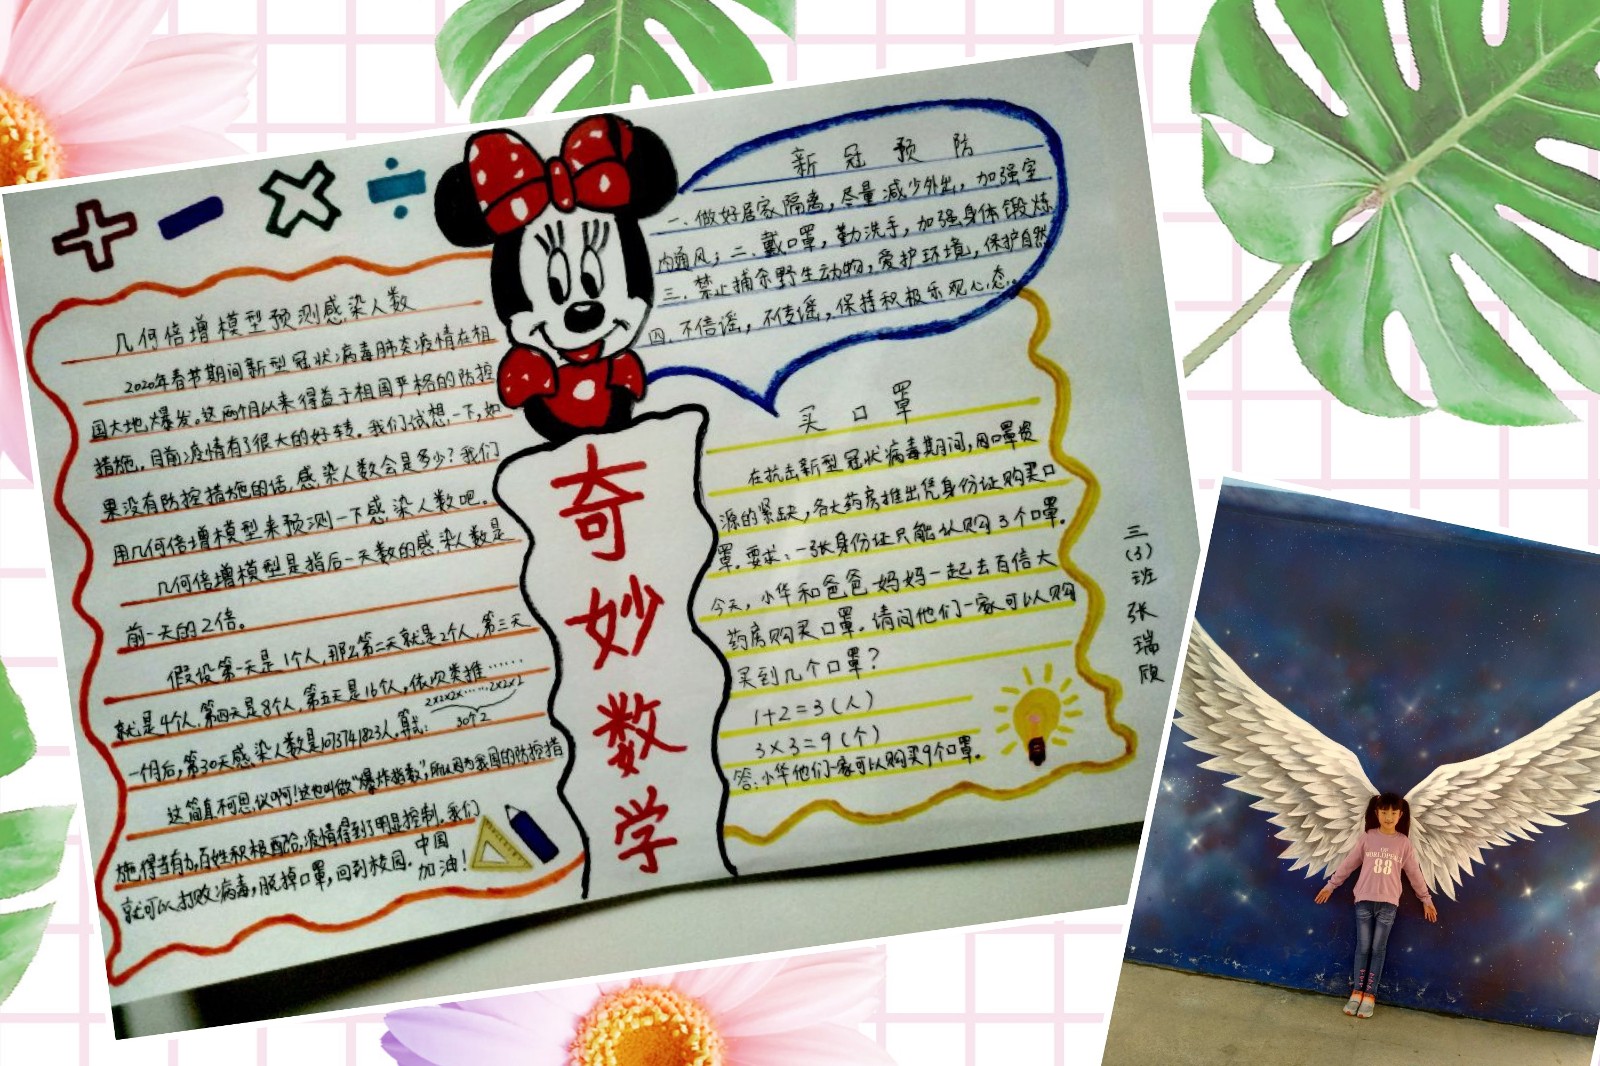 几何倍增模型预测感染人数
2020年春节期间新型冠状病毒肺炎疫情在祖
国大地爆发。这两个月以来得益于祖国严格的防控
措施,目前疫情有了很大的好转。我们试想一下,如
果没有防控措施的话,感染人数会是多少?我们
用几何倍增模型来预测一下感染人数吧。
几何倍增模型是指后一天数的感染人数是
前一天的2倍。
假设第一天是1个人,那么第二天就是2个人,第三天
就是4个人,第四天是8个人,第五天是16个人,依次类推……
2×2×2×……2×2×2
30个2
一个月后,第30天感染人数是1073741823人。算式:
这简直不可思议啊!这也叫做“爆炸指数”,所以因为我国的防控措
施得当有力,百姓积极配合,疫情得到了明显控制。我们
就可以打败病毒,脱掉口罩,回到校园。
中国
加油!
奇
妙
数
学
新冠预防
一、做好居家隔离,尽量减少外出,加强室
内通风;二、戴口罩,勤洗手,加强身体锻炼
三、禁止捕杀野生动物,爱护环境,保护自然
四、不信谣,不传谣,保持积极乐观心态。
买口罩
在抗击新型冠状病毒期间,因口罩资
源的紧缺,各大药房推出凭身份证购买口
罩。要求:一张身份证只能认购3个口罩。
今天,小华和爸爸妈妈一起去百信大
药房购买口罩。请问他们一家可以购
买到几个口罩?
1+2=3(人)
3×3=9(个)
答:小华他们一家可以购买9个口罩。
三(3)班张瑞欣
88